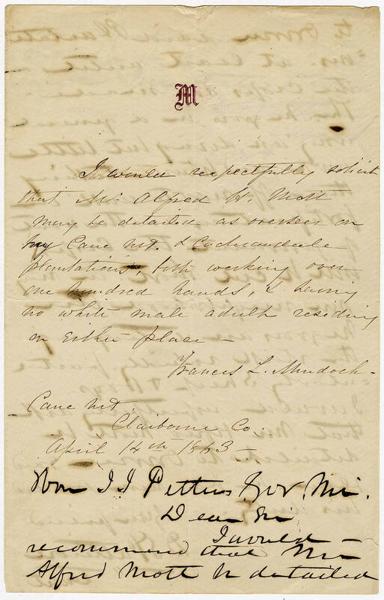 M
I would respectfully solicit
that Mr. Alfred W. Mott
may be detailed as overseer on
my Cane
plantations, both working over
one hundred hands, & having
no white male adult residing
on either place —
Francis L. Murdoch
Claiborne Co.
April 14th 1863
Hon J J Pettus Gov Mi.
Dear Sir
I would —
recommend that Mr
Alfred Mott be detailed